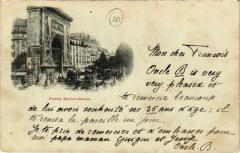 40
Porte Saint-Denis
Mon cher François
Oncle B is very
very pleased et
te remercie beaucoup
de lui avoir souhaité ses 35 ans d'age; il
te rendra la pareille un jour.
Je te prie de remercier et d'embrasser pour
moi papa maman Guigui et
Oncle B.